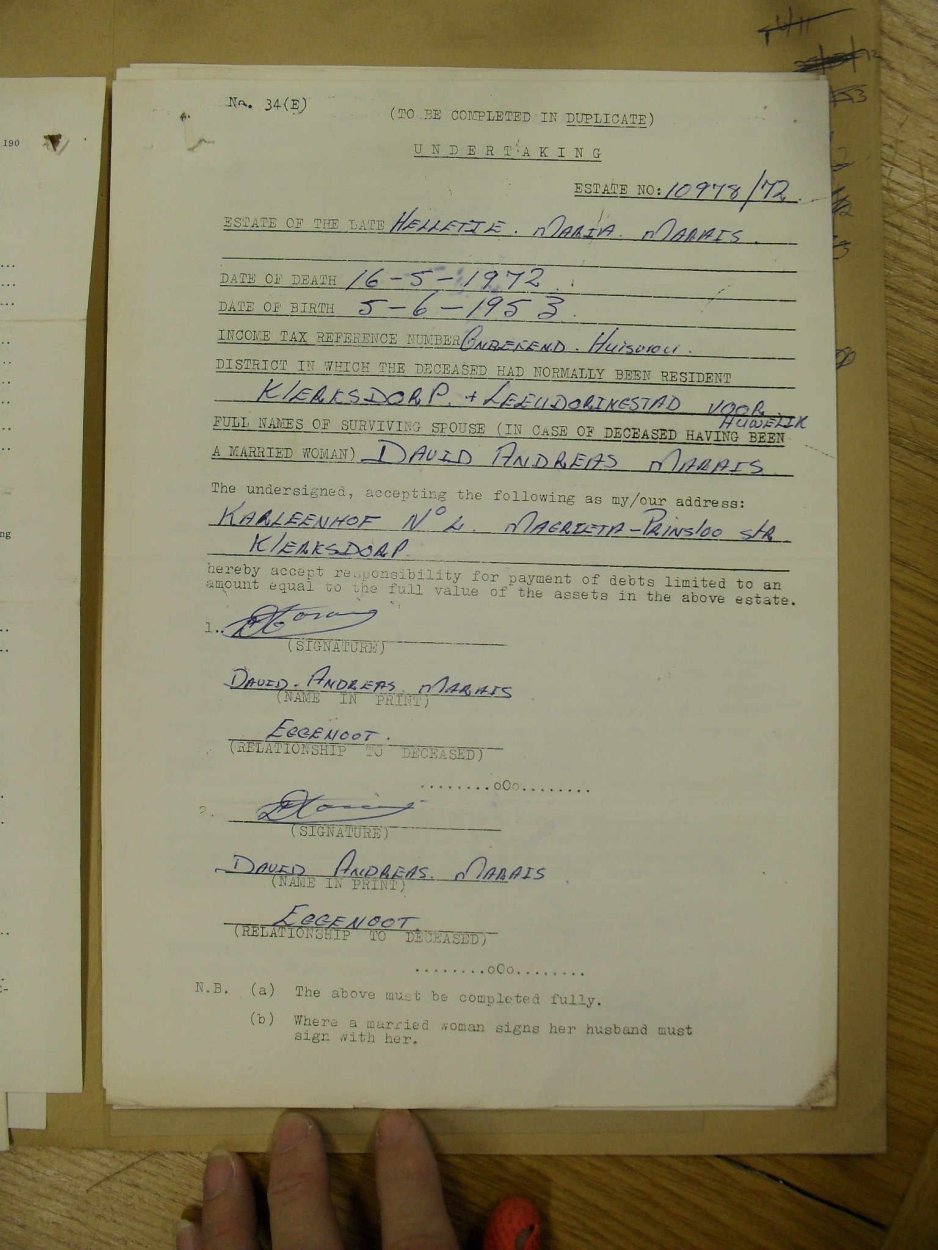 No. 34(E)
(TO BE COMPLETED IN DUPLICATE)
UNDERTAKING
ESTATE NO: 10978/72
ESTATE OF THE LATE HELLETJE. MARIA. MARAIS.
DATE OF DEATH 16-5-1972.
DATE OF BIRTH 5-6-1953.
INCOME TAX REFERENCE NUMBER ONBEKEND. HUISVROU.
DISTRICT IN WHICH THE DECEASED HAD NORMALLY BEEN RESIDENT
KLERKSDORP. + LEEUDORINGSTAD VOOR HUWELIK
FULL NAMES OF SURVIVING SPOUSE (IN CASE OF DECEASED HAVING BEEN
A MARRIED WOMAN) DAVID ANDREAS MARAIS
The undersigned, accepting the following as my/our address:
KARLEENHOF No 2. MAGRIETA-PRINSLOO STR
KLERKSDORP.
hereby accept responsibility for payment of debts limited to an
amount equal to the full value of the assets in the above estate.
1.
(SIGNATURE)
DAVID. ANDREAS. MARAIS
(NAME IN PRINT)
EGGENOOT.
(RELATIONSHIP TO DECEASED)
........oOo........
2.
(SIGNATURE)
DAVID ANDREAS. MARAIS
(NAME IN PRINT)
EGGENOOT
(RELATIONSHIP TO DECEASED)
........oOo........
N.B. (a) The above must be completed fully.
(b) Where a married woman signs her husband must
sign with her.
190